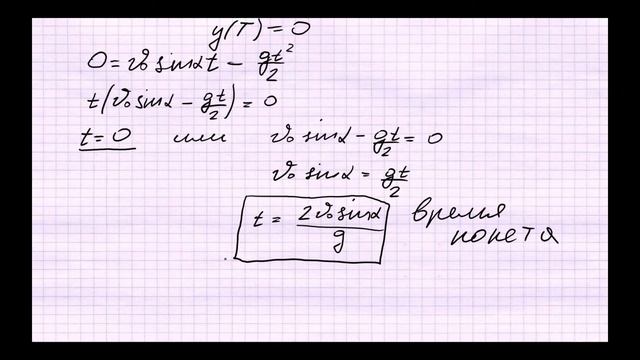 y(T) = 0
0 = v₀ sinα t − gt²/2
t(v₀ sinα − gt/2) = 0
t = 0 или v₀ sinα − gt/2 = 0
v₀ sinα = gt/2
t = 2v₀ sinα/g время
полета